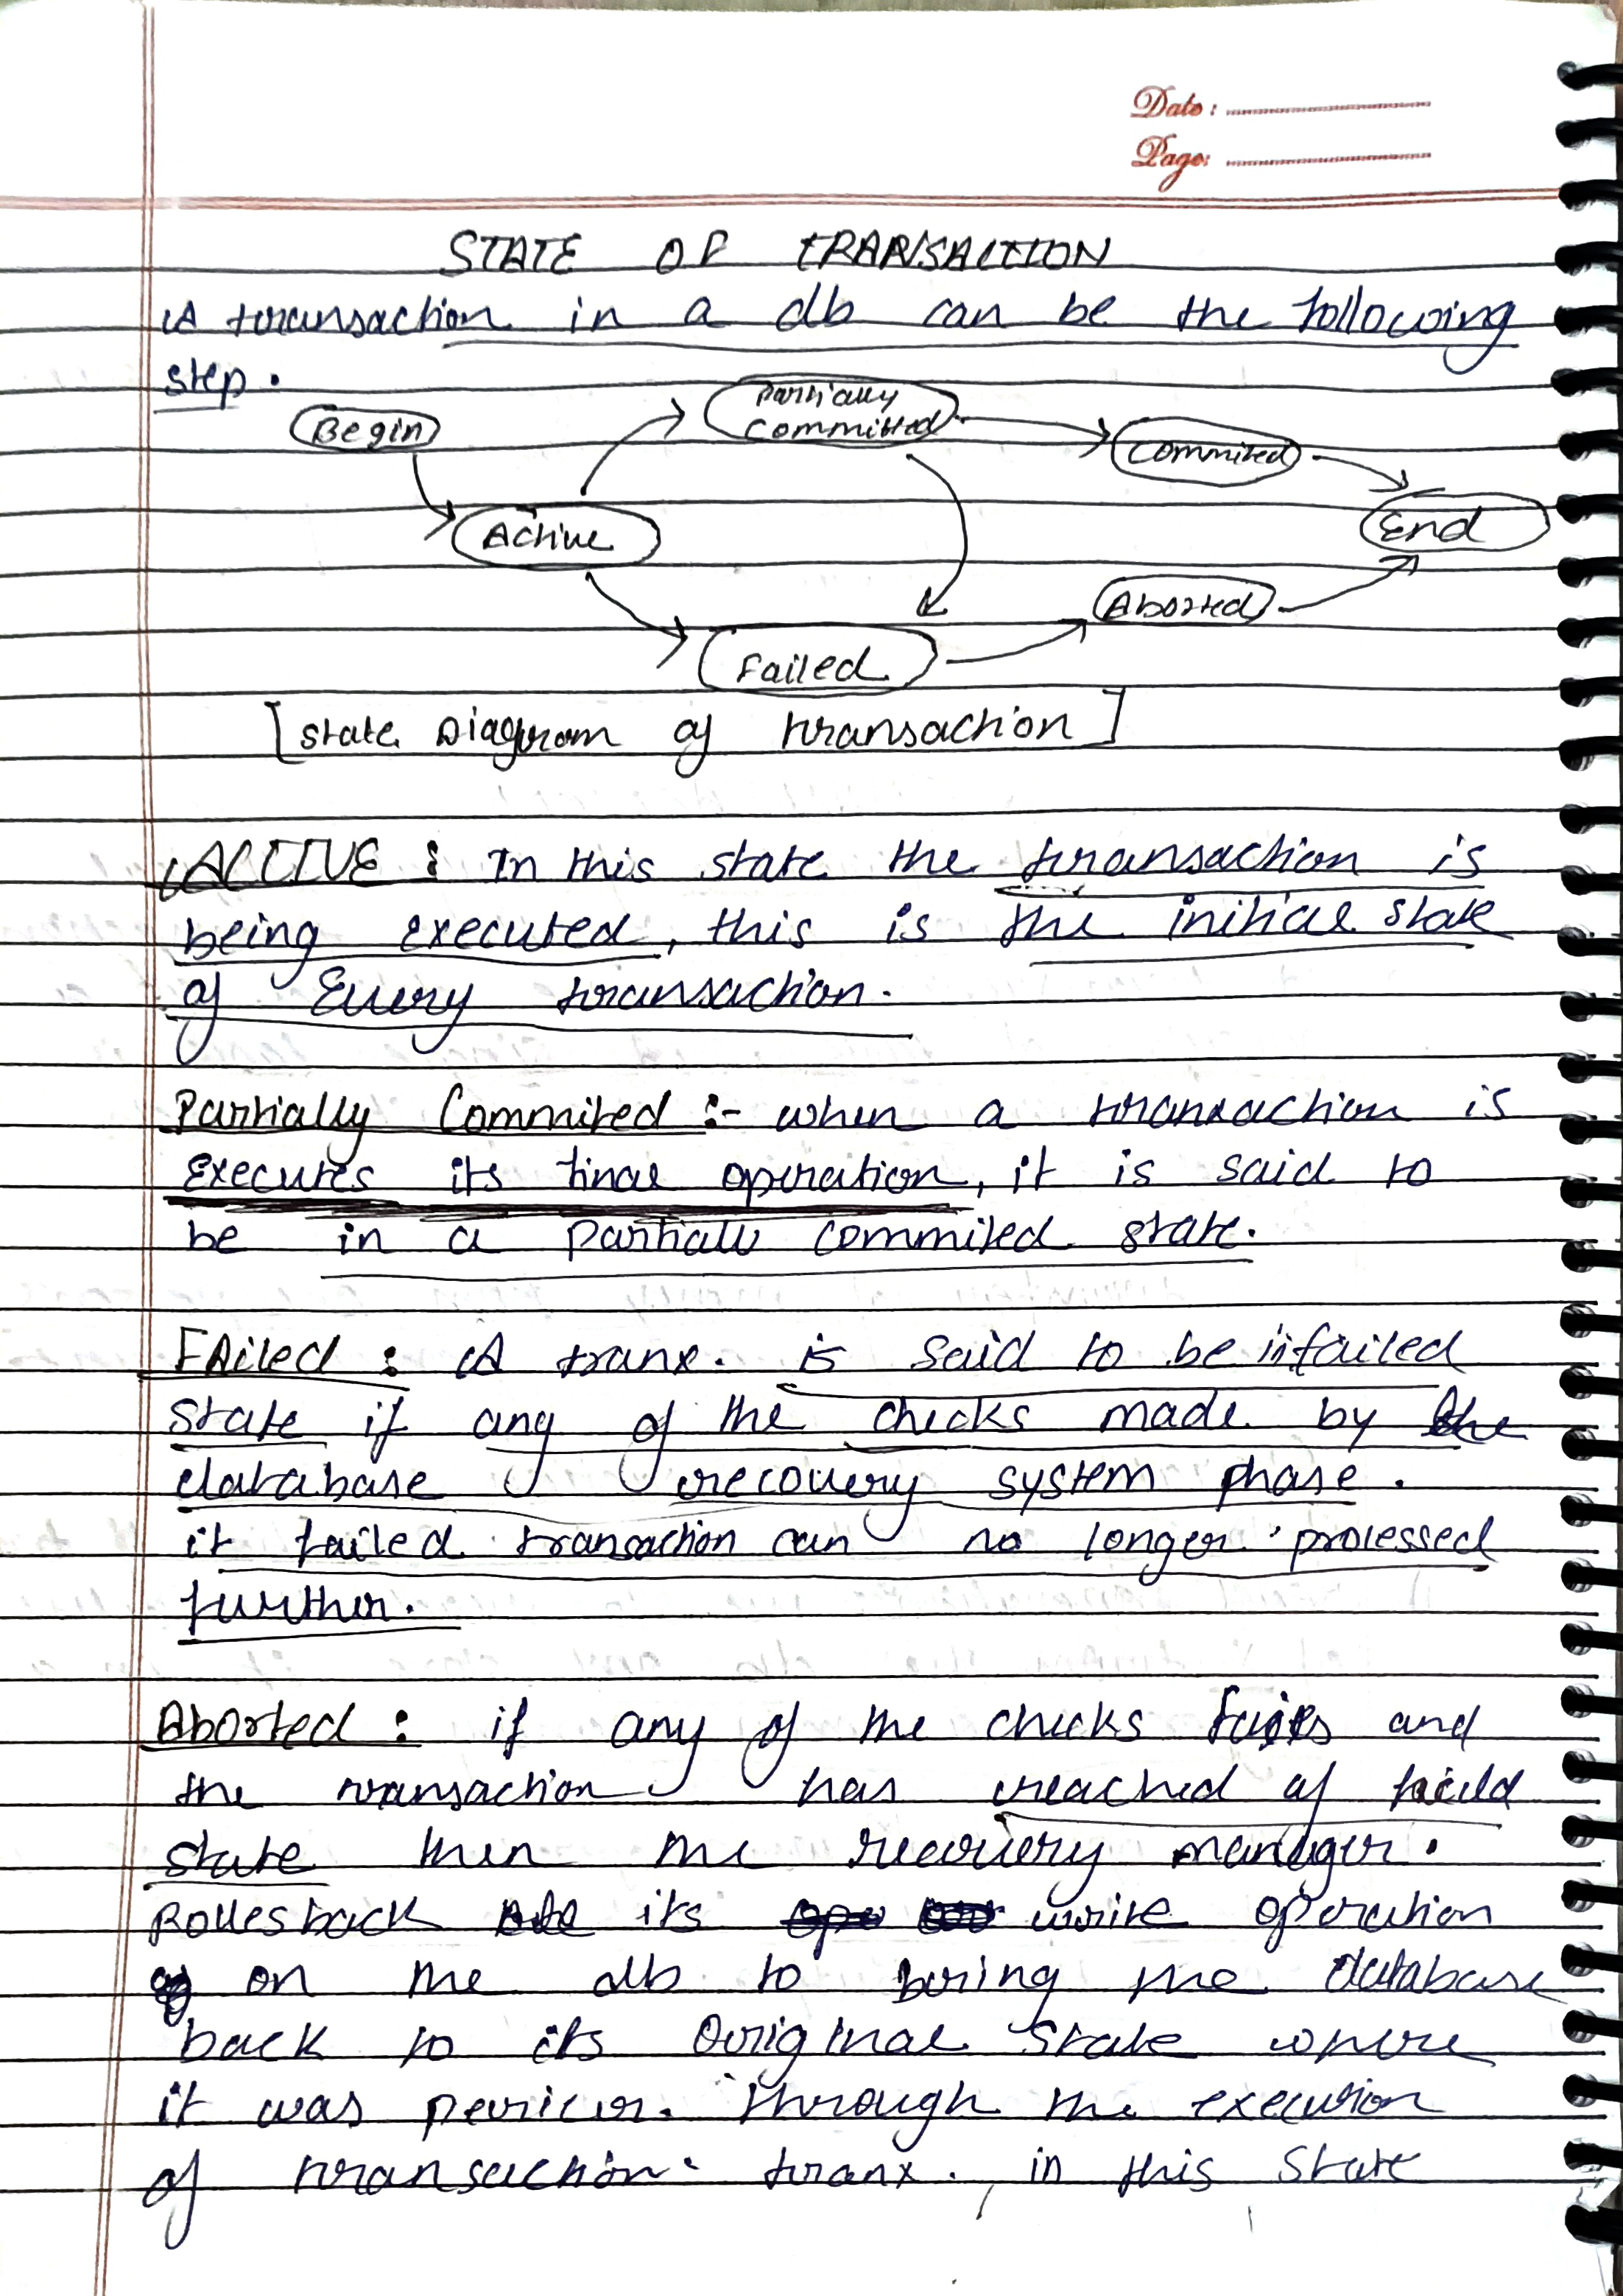 Date :
Page:
STATE OF TRANSACTION
A transaction in a db can be the following
step.
Begin
Partially
Committed
Commited
Active
End
Aborted
Failed
[State Diagram of transaction]
ACTIVE : In this state the transaction is
being executed, this is the initial state
of Every transaction.
Partially Commited :- when a transaction is
Executes its final operation, it is said to
be in a partially commited state.
FAiled : A tranx. is said to be in failed
state if any of the checks made by the
database recovery system phase.
it failed transaction can no longer processed
further.
Aborted : if any of the checks fails and
the transaction has reached of
state then the recovery manager.
Rollesback its write operation
on the db to bring the database
back to its Original state where
it was through the execution
of transaction. tranx. in this State